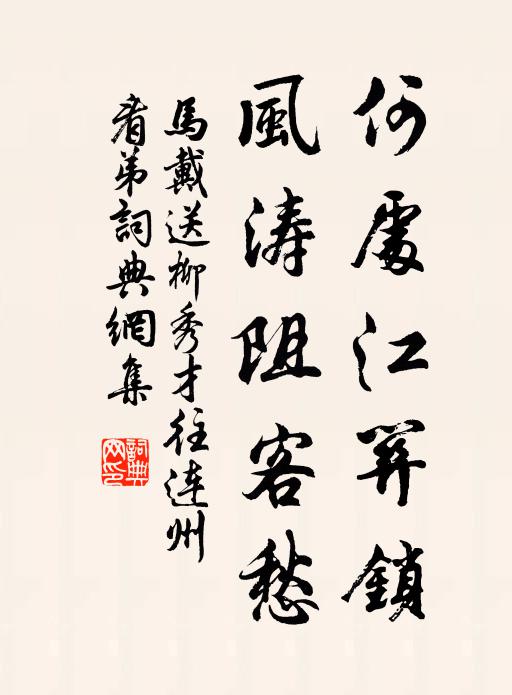 何處江關鎖
風濤阻客愁
馬戴送柳秀才往連州
看弟詞典網集
詞典网印